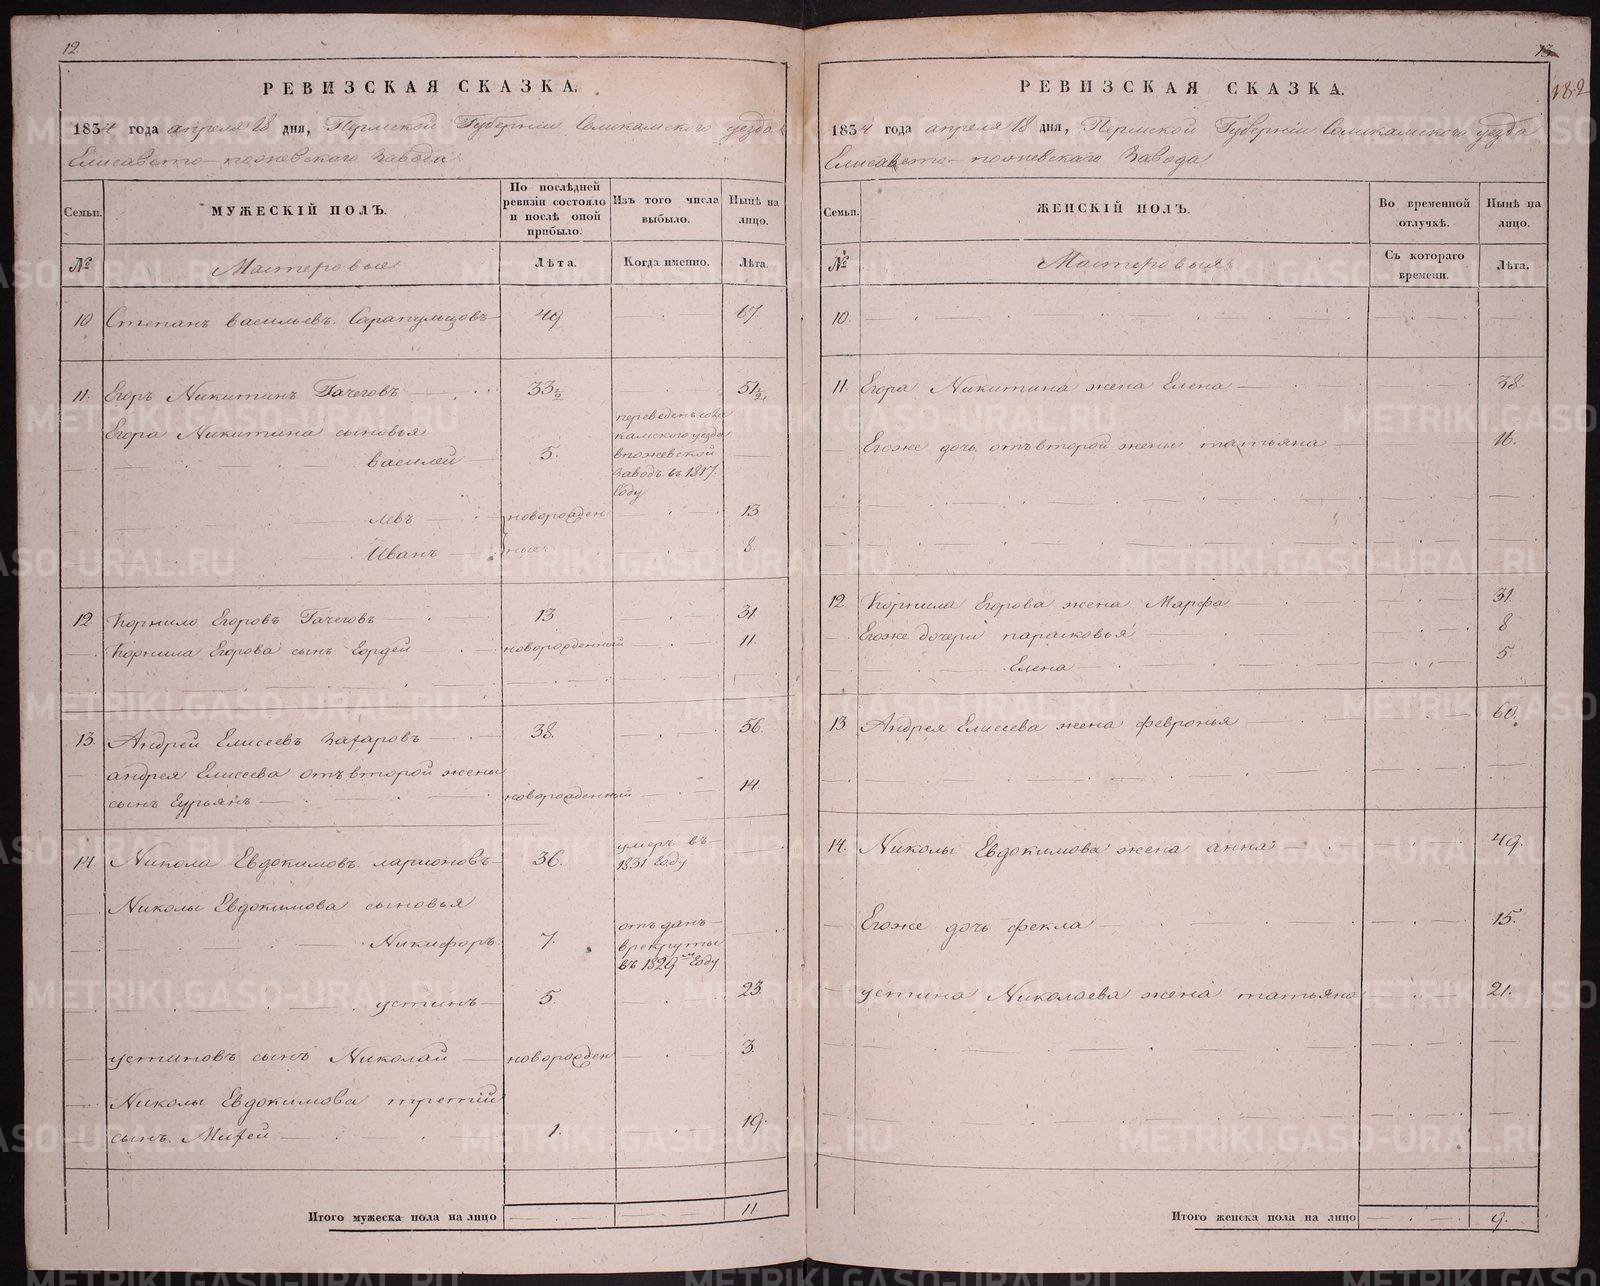 12.
РЕВИЗСКАЯ СКАЗКА.
1834 года апреля 18 дня, Пермской Губернии Соликамского уезда
Елисавето-пожевскаго Завода
Семьи.
МУЖЕСКІЙ ПОЛЪ.
По послѣдней ревизіи состояло и послѣ оной прибыло.
Изъ того числа выбыло.
Нынѣ на лицо.
№
Мастеровые
Лѣта.
Когда именно.
Лѣта.
10 Степанъ васильевъ Сарапульцовъ 49 67.
11. Егоръ Никитинъ Гачеговъ 33½ 51½
Егора Никитина сыновья
василей 5. переведенъ
камского уезда
впожевской
заводъ въ 1817.
Году
левъ новорожден 13
Иванъ ные. 8.
12 Корнило Егоровъ Гачеговъ 13 31
Корнила Егорова сынъ Гордей новорожденный 11.
13. Андрей Елисеевъ Захаровъ 38. 56.
андрея Елисеева отъ второй жены
сынъ Гурьянъ новорожденный 14.
14 Никола Евдокимовъ ларионовъ 36. умеръ въ
1831 Году
Николы Евдокимова сыновья
Никифоръ 7. отъ данъ
врекруты
въ 1829м Году
устинъ 5. 23.
устиновъ сынъ Николай новорожден 3.
Николы Евдокимова третий
сынъ Михей 1. 19.
Итого мужеска пола на лицо 11.
13
182
РЕВИЗСКАЯ СКАЗКА.
1834 года апреля 18 дня, Пермской Губернии Соликамского уезда
Елисавето-пожевскаго Завода
Семьи.
ЖЕНСКІЙ ПОЛЪ.
Во временной отлучкѣ.
Нынѣ на лицо.
№
Мастеровыя
Съ котораго времени.
Лѣта.
10.
11. Егора Никитина жена Елена 38.
Егоже дочь отъ второй жены татьяна 16.
12. Корнила Егорова жена Марфа 31.
Егоже дочери парасковья 8
Елена 5.
13 Андрея Елисеева жена февронья 60.
14. Николы Евдокимова жена анна 49.
Егоже дочь фекла 15.
устина Николаева жена татьяна 21.
Итого женска пола на лицо 9.
METRIKI.GASO-URAL.RU